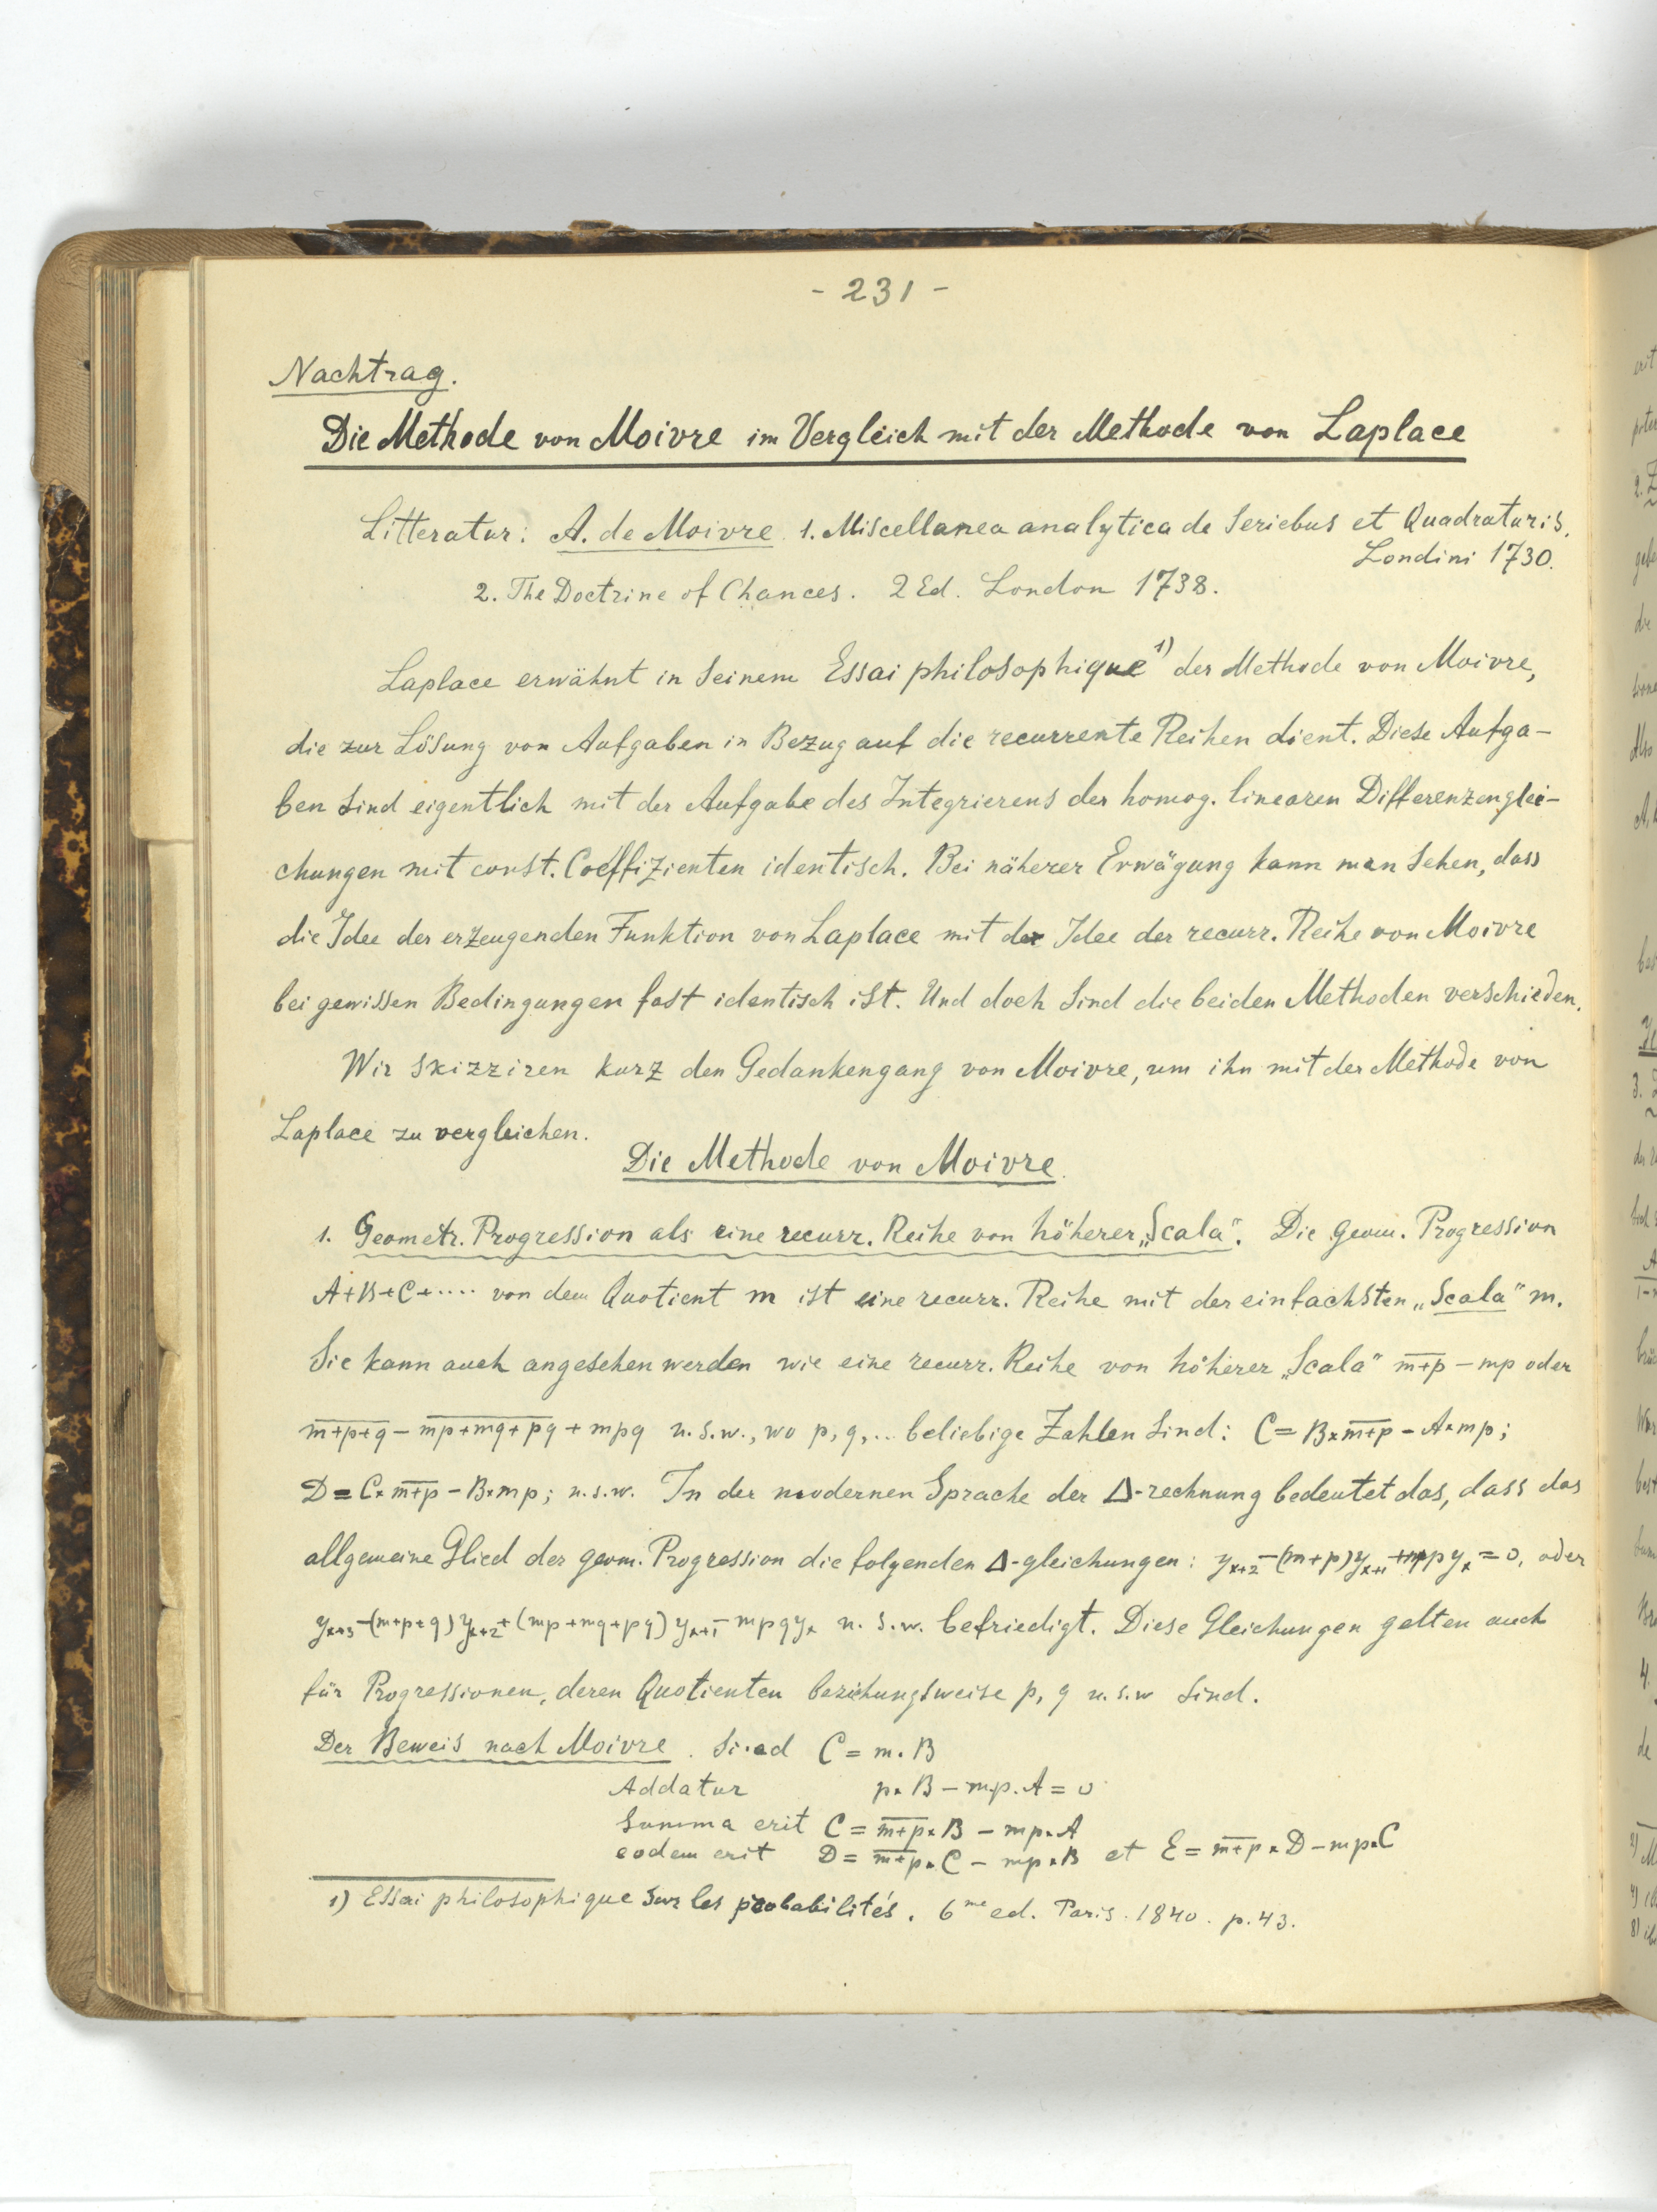 - 231 -
Nachtrag.
Die Methode von Moivre im Vergleich mit der Methode von Laplace
Litteratur: A. de Moivre 1. Miscellanea analytica de Seriebus et Quadraturis.
Londini 1730.
2. The Doctrine of Chances. 2 Ed. London 1738.
Laplace erwähnt in seinem Essai philosophique 1) der Methode von Moivre,
die zur Lösung von Aufgaben in Bezug auf die recurrente Reihen dient. Diese Aufga-
ben sind eigentlich mit der Aufgabe des Integrierens der homog. linearen Differenzenglei-
chungen mit const. Coeffizienten identisch. Bei näherer Erwägung kann man sehen, dass
die Idee der erzeugenden Funktion von Laplace mit der Idee der recurr. Reihe von Moivre
bei gewissen Bedingungen fast identisch ist. Und doch sind die beiden Methoden verschieden.
Wir skizziren kurz den Gedankengang von Moivre, um ihn mit der Methode von
Laplace zu vergleichen.
Die Methode von Moivre.
1. Geometr. Progression als eine recurr. Reihe von höherer „Scala“. Die geom. Progression
A+B+C+···· von dem Quotient m ist eine recurr. Reihe mit der einfachsten „Scala“ m.
Sie kann auch angesehen werden wie eine recurr. Reihe von höherer „Scala“ m̅+̅p̅ - mp oder
m̅+̅p̅+̅q̅ - m̅p̅+̅m̅q̅+̅p̅q̅ + mpq u.s.w., wo p, q,.. beliebige Zahlen sind: C = B×m̅+̅p̅ - A×mp;
D = C×m̅+̅p̅ - B×mp; u.s.w. In der modernen Sprache der Δ-rechnung bedeutet das, dass das
allgemeine Glied der geom. Progression die folgenden Δ-gleichungen: yₓ₊₂-(m+p)yₓ₊₁+mpyₓ=0, oder
yₓ₊₃-(m+p+q)yₓ₊₂+(mp+mq+pq)yₓ₊₁-mpqyₓ u.s.w. befriedigt. Diese Gleichungen gelten auch
für Progressionen, deren Quotienten beziehungsweise p, q u.s.w sind.
Der Beweis nach Moivre. C = m.B
Addatur p×B - m.p.A = 0
Summa erit C = m̅+̅p̅×B - mp×A
eodem erit D = m̅+̅p̅×C - mp×B et E = m̅+̅p̅×D - mp×C
1) Essai philosophique sur les probabilités. 6me ed. Paris. 1840. p.43.